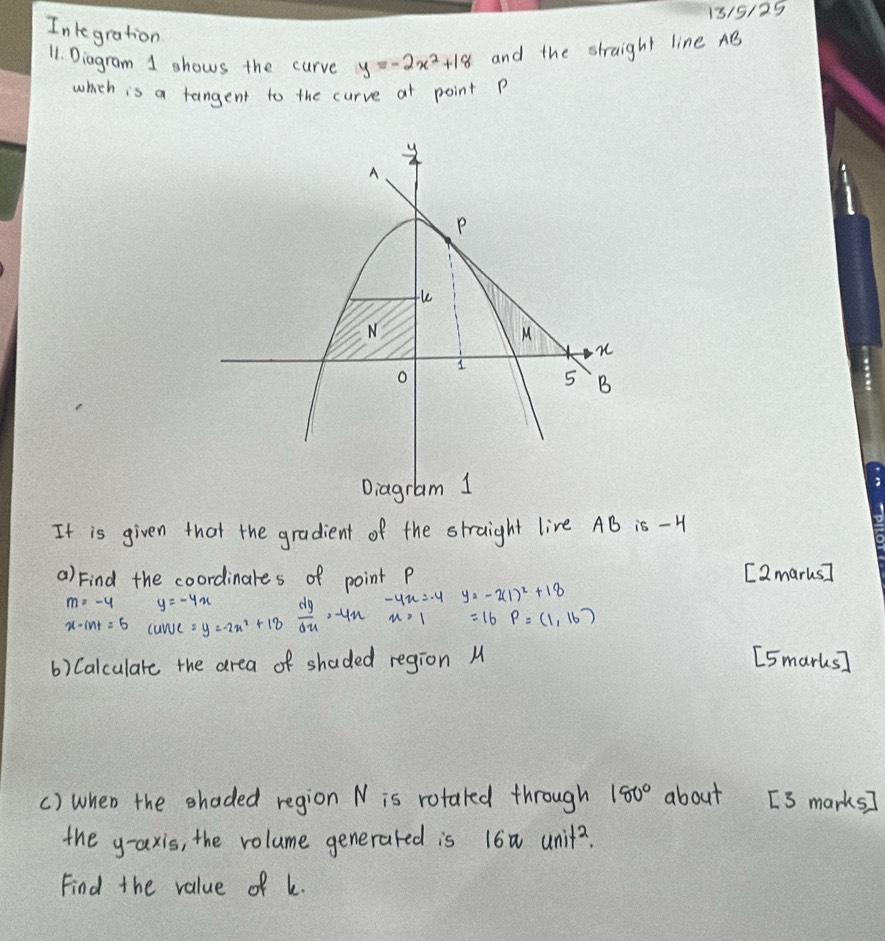 13/5/25
Integration
11. Diagram 1 shows the curve y = -2x² + 18 and the straight line AB
which is a tangent to the curve at point P
y
A
P
k
N
M
x
O
1
5
B
Diagram 1
It is given that the gradient of the straight line AB is -4
a) Find the coordinates of point P [2 marks]
m = -4 y = -4x dy/dx = -4x -4x = -4 y = -2(1)² + 18
x-int = 5 curve = y = -2x² + 18 x = 1 = 16 P = (1, 16)
b) Calculate the area of shaded region M [5 marks]
c) When the shaded region N is rotated through 180° about [3 marks]
the y-axis, the volume generated is 16π unit².
Find the value of k.
PILOT